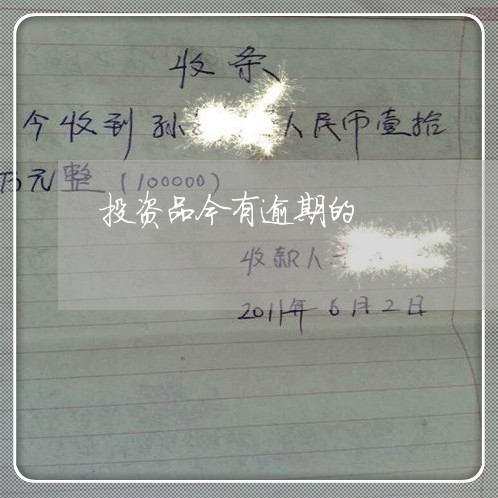 收条
今收到孙 人民币壹拾
万元整(100000)
投资品今有逾期的
收款人
2011年6月2日